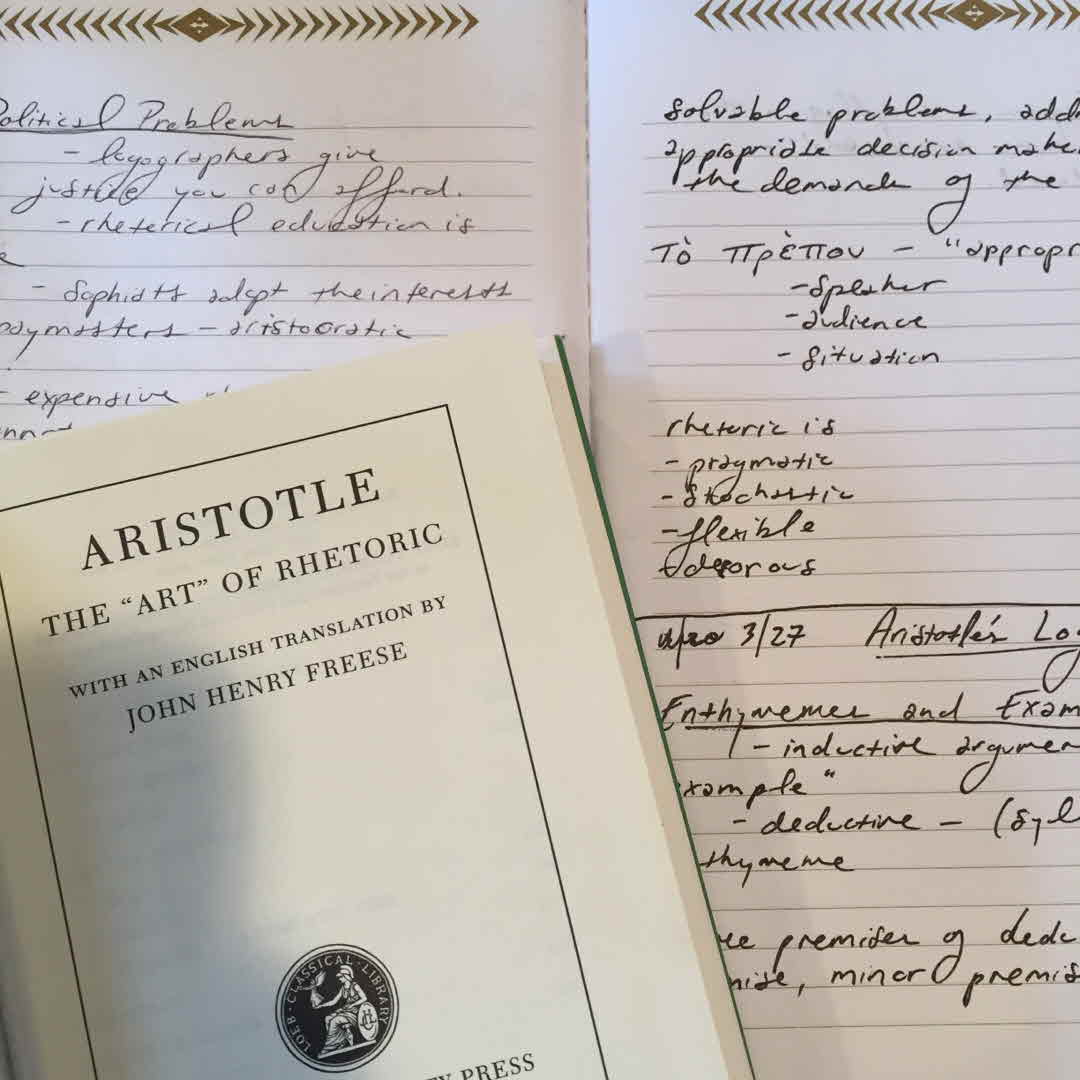 Political Problems
- logographers give
justice you can afford.
- rhetorical education is
- Sophists adopt the interests
paymasters - aristocratic
- expensive
solvable problems, add
appropriate decision make
the demands of the
Τὸ πρὲπου - "appropr
- speaker
- audience
- situation
rhetoric is
- pragmatic
- stochastic
- flexible
decorous
3/27 Aristotle's Lo
Enthymemes and Exam
- inductive argumen
example"
- deductive - (syl
thymeme
premises of dedu
mise, minor premis
ARISTOTLE
THE "ART" OF RHETORIC
WITH AN ENGLISH TRANSLATION BY
JOHN HENRY FREESE
LOEB·CLASSICAL·LIBRARY
PRESS